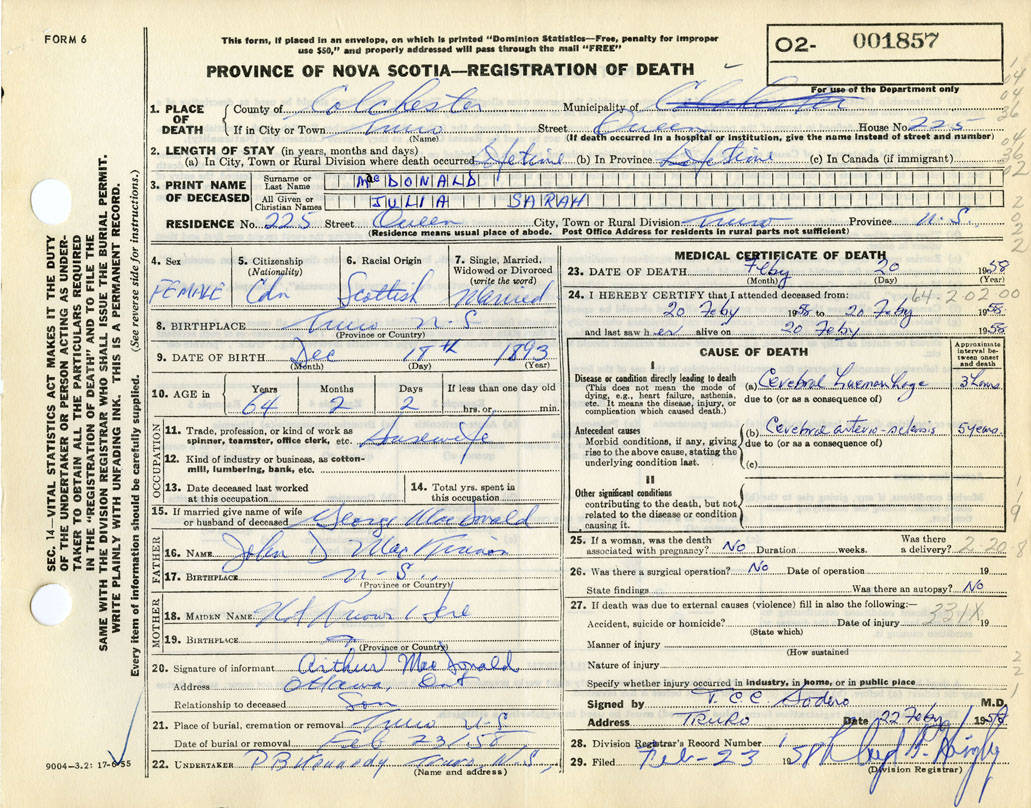 FORM 6
This form, if placed in an envelope, on which is printed "Dominion Statistics—Free, penalty for improper
use $50," and properly addressed will pass through the mail "FREE"
02- 001857
For use of the Department only
PROVINCE OF NOVA SCOTIA—REGISTRATION OF DEATH
SEC. 14—VITAL STATISTICS ACT MAKES IT THE DUTY
OF THE UNDERTAKER OR PERSON ACTING AS UNDER-
TAKER TO OBTAIN ALL THE PARTICULARS REQUIRED
IN THE "REGISTRATION OF DEATH" AND TO FILE THE
SAME WITH THE DIVISION REGISTRAR WHO SHALL ISSUE THE BURIAL PERMIT.
WRITE PLAINLY WITH UNFADING INK. THIS IS A PERMANENT RECORD.
Every item of information should be carefully supplied. (See reverse side for instructions.)
1. PLACE OF DEATH County of Colchester Municipality of Colchester
If in City or Town Truro Street Queen House No. 225
(Name) (If death occurred in a hospital or institution, give the name instead of street and number)
2. LENGTH OF STAY (in years, months and days)
(a) In City, Town or Rural Division where death occurred Lifetime (b) In Province Lifetime (c) In Canada (if immigrant)
3. PRINT NAME OF DECEASED
Surname or Last Name MacDONALD
All Given or Christian Names JULIA SARAH
RESIDENCE No. 225 Street Queen City, Town or Rural Division Truro Province N.S.
(Residence means usual place of abode. Post Office Address for residents in rural parts not sufficient)
4. Sex FEMALE
5. Citizenship (Nationality) Cdn
6. Racial Origin Scottish
7. Single, Married, Widowed or Divorced (write the word) Married
8. BIRTHPLACE Truro N-S
(Province or Country)
9. DATE OF BIRTH Dec 18th 1893
(Month) (Day) (Year)
10. AGE in Years 64 Months 2 Days 2 If less than one day old hrs. or min.
OCCUPATION
11. Trade, profession, or kind of work as spinner, teamster, office clerk, etc. Housewife
12. Kind of industry or business, as cotton-mill, lumbering, bank, etc.
13. Date deceased last worked at this occupation
14. Total yrs. spent in this occupation
15. If married give name of wife or husband of deceased George MacDonald
FATHER
16. NAME John D MacKinnon
17. BIRTHPLACE N-S
(Province or Country)
MOTHER
18. MAIDEN NAME Not Known Here
19. BIRTHPLACE
(Province or Country)
20. Signature of informant Arthur MacDonald
Address Ottawa, Ont
Relationship to deceased Son
21. Place of burial, cremation or removal Truro N-S
Date of burial or removal Feb 23/58
22. UNDERTAKER P B Kennedy Truro, N.S.
(Name and address)
9004-3.2: 17-6-55
MEDICAL CERTIFICATE OF DEATH
23. DATE OF DEATH Feby 20 1958
(Month) (Day) (Year)
64-202.00
24. I HEREBY CERTIFY that I attended deceased from:
20 Feby 1958 to 20 Feby 1958
and last saw her alive on 20 Feby 1958
CAUSE OF DEATH
Approximate interval between onset and death
I
Disease or condition directly leading to death
(This does not mean the mode of dying, e.g., heart failure, asthenia, etc. It means the disease, injury, or complication which caused death.)
(a) Cerebral Haemorrhage 3 hours
due to (or as a consequence of)
Antecedent causes
Morbid conditions, if any, giving rise to the above cause, stating the underlying condition last.
(b) Cerebral arterio-sclerosis 5 years.
due to (or as a consequence of)
(c)
II
Other significant conditions
contributing to the death, but not related to the disease or condition causing it.
25. If a woman, was the death associated with pregnancy? No Duration weeks. Was there a delivery?
2-20-8
26. Was there a surgical operation? No Date of operation 19
State findings Was there an autopsy? No
27. If death was due to external causes (violence) fill in also the following:—
331X
Accident, suicide or homicide? Date of injury 19
(State which)
Manner of injury
(How sustained
Nature of injury
Specify whether injury occurred in industry, in home, or in public place
Signed by T. C. C. Sodero M.D.
Address TRURO Date 22 Feby 1958
28. Division Registrar's Record Number
29. Filed Feb-23 1958
(Division Registrar)